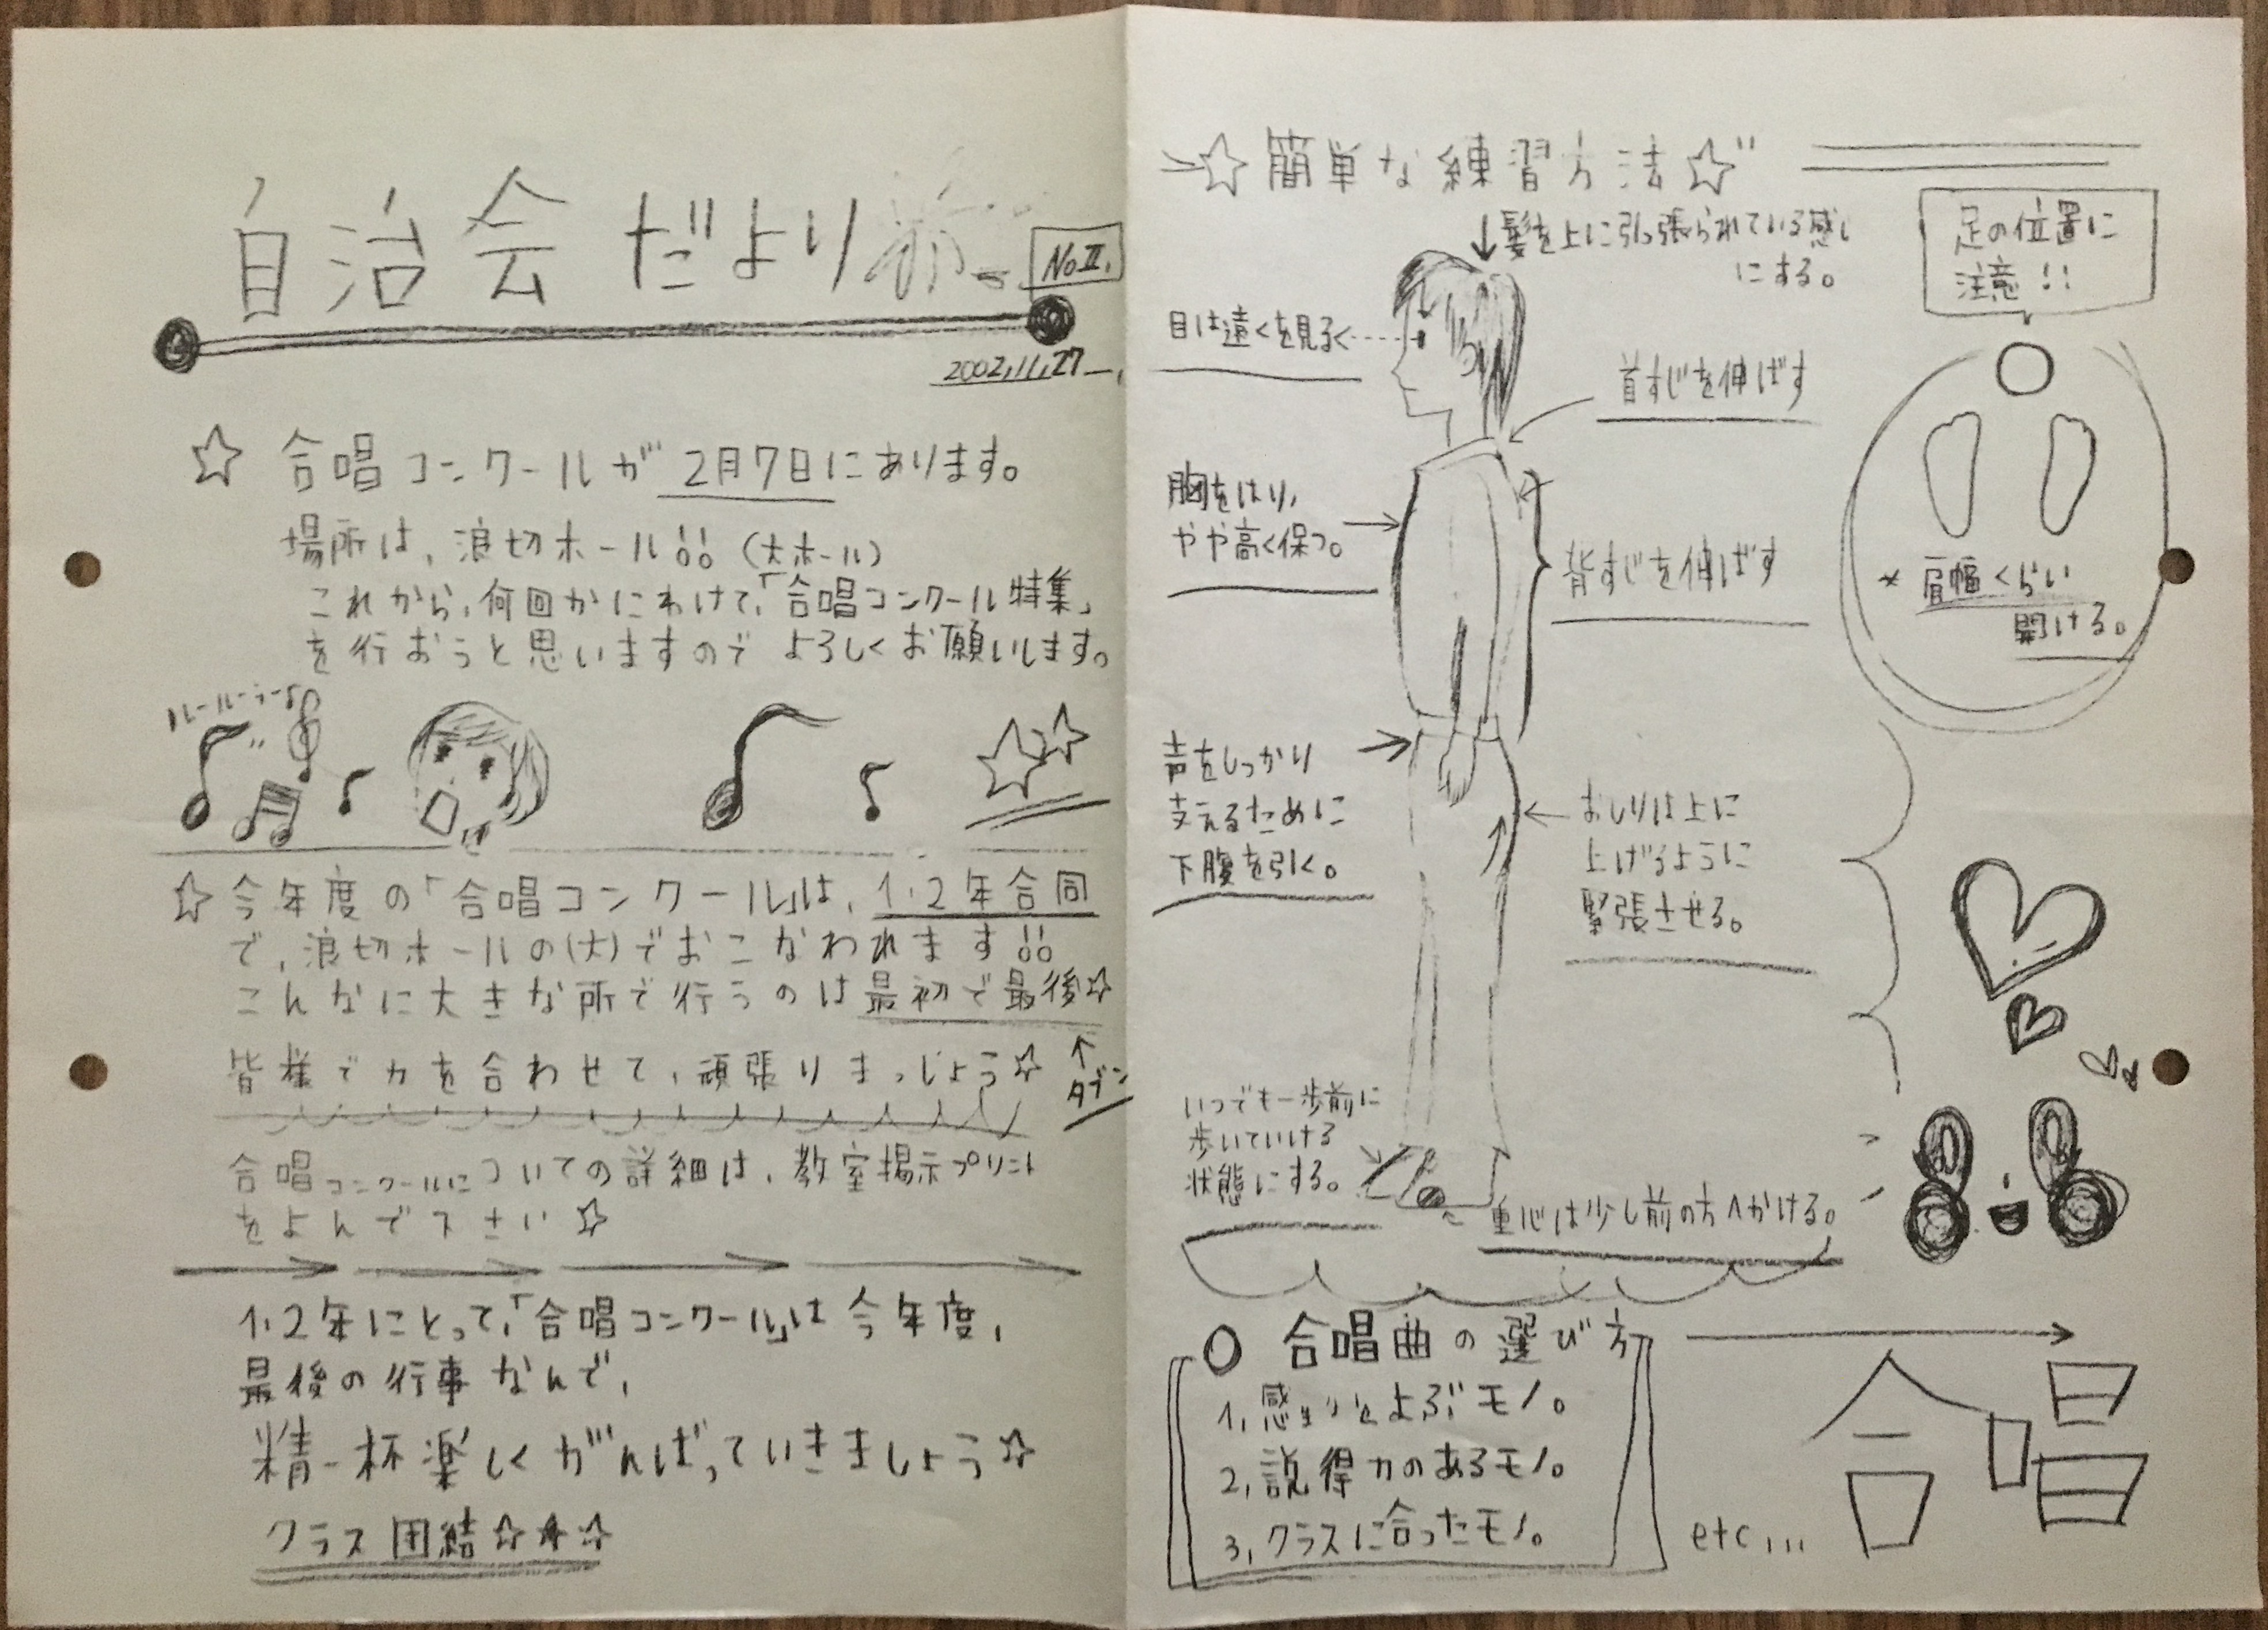 自治会だより
No.II.
2002.11.27
☆ 合唱コンクールが 2月7日にあります。
場所は、浪切ホール!! (大ホール)
これから、何回かにわけて、「合唱コンクール特集」
を行おうと思いますので よろしくお願いします。
ルールーラー♪
☆今年度の「合唱コンクール」は、1・2年合同
で、浪切ホールの(大)でおこなわれます!!
こんなに大きな所で行うのは最初で最後☆
↑
タブン
皆様で力を合わせて、頑張りましょう☆
合唱コンクールについての詳細は、教室掲示プリント
をよんで下さい☆
1・2年にとって、「合唱コンクール」は今年度、
最後の行事なんで、
精一杯楽しくがんばっていきましょう☆
クラス団結☆★☆
☆簡単な練習方法☆
↓髪を上に引っ張られている感じ
にする。
目は遠くを見る
首すじを伸ばす
胸をはり、
やや高く保つ。
背すじを伸ばす
足の位置に
注意!!
* 肩幅くらい
開ける。
声をしっかり
支えるために
下腹を引く。
おしりは上に
上げるように
緊張させる。
いつでも一歩前に
歩いていける
状態にする。
重心は少し前の方へかける。
○ 合唱曲の選び方
1, 感動をよぶモノ。
2, 説得力のあるモノ。
3, クラスに合ったモノ。
etc...
合唱